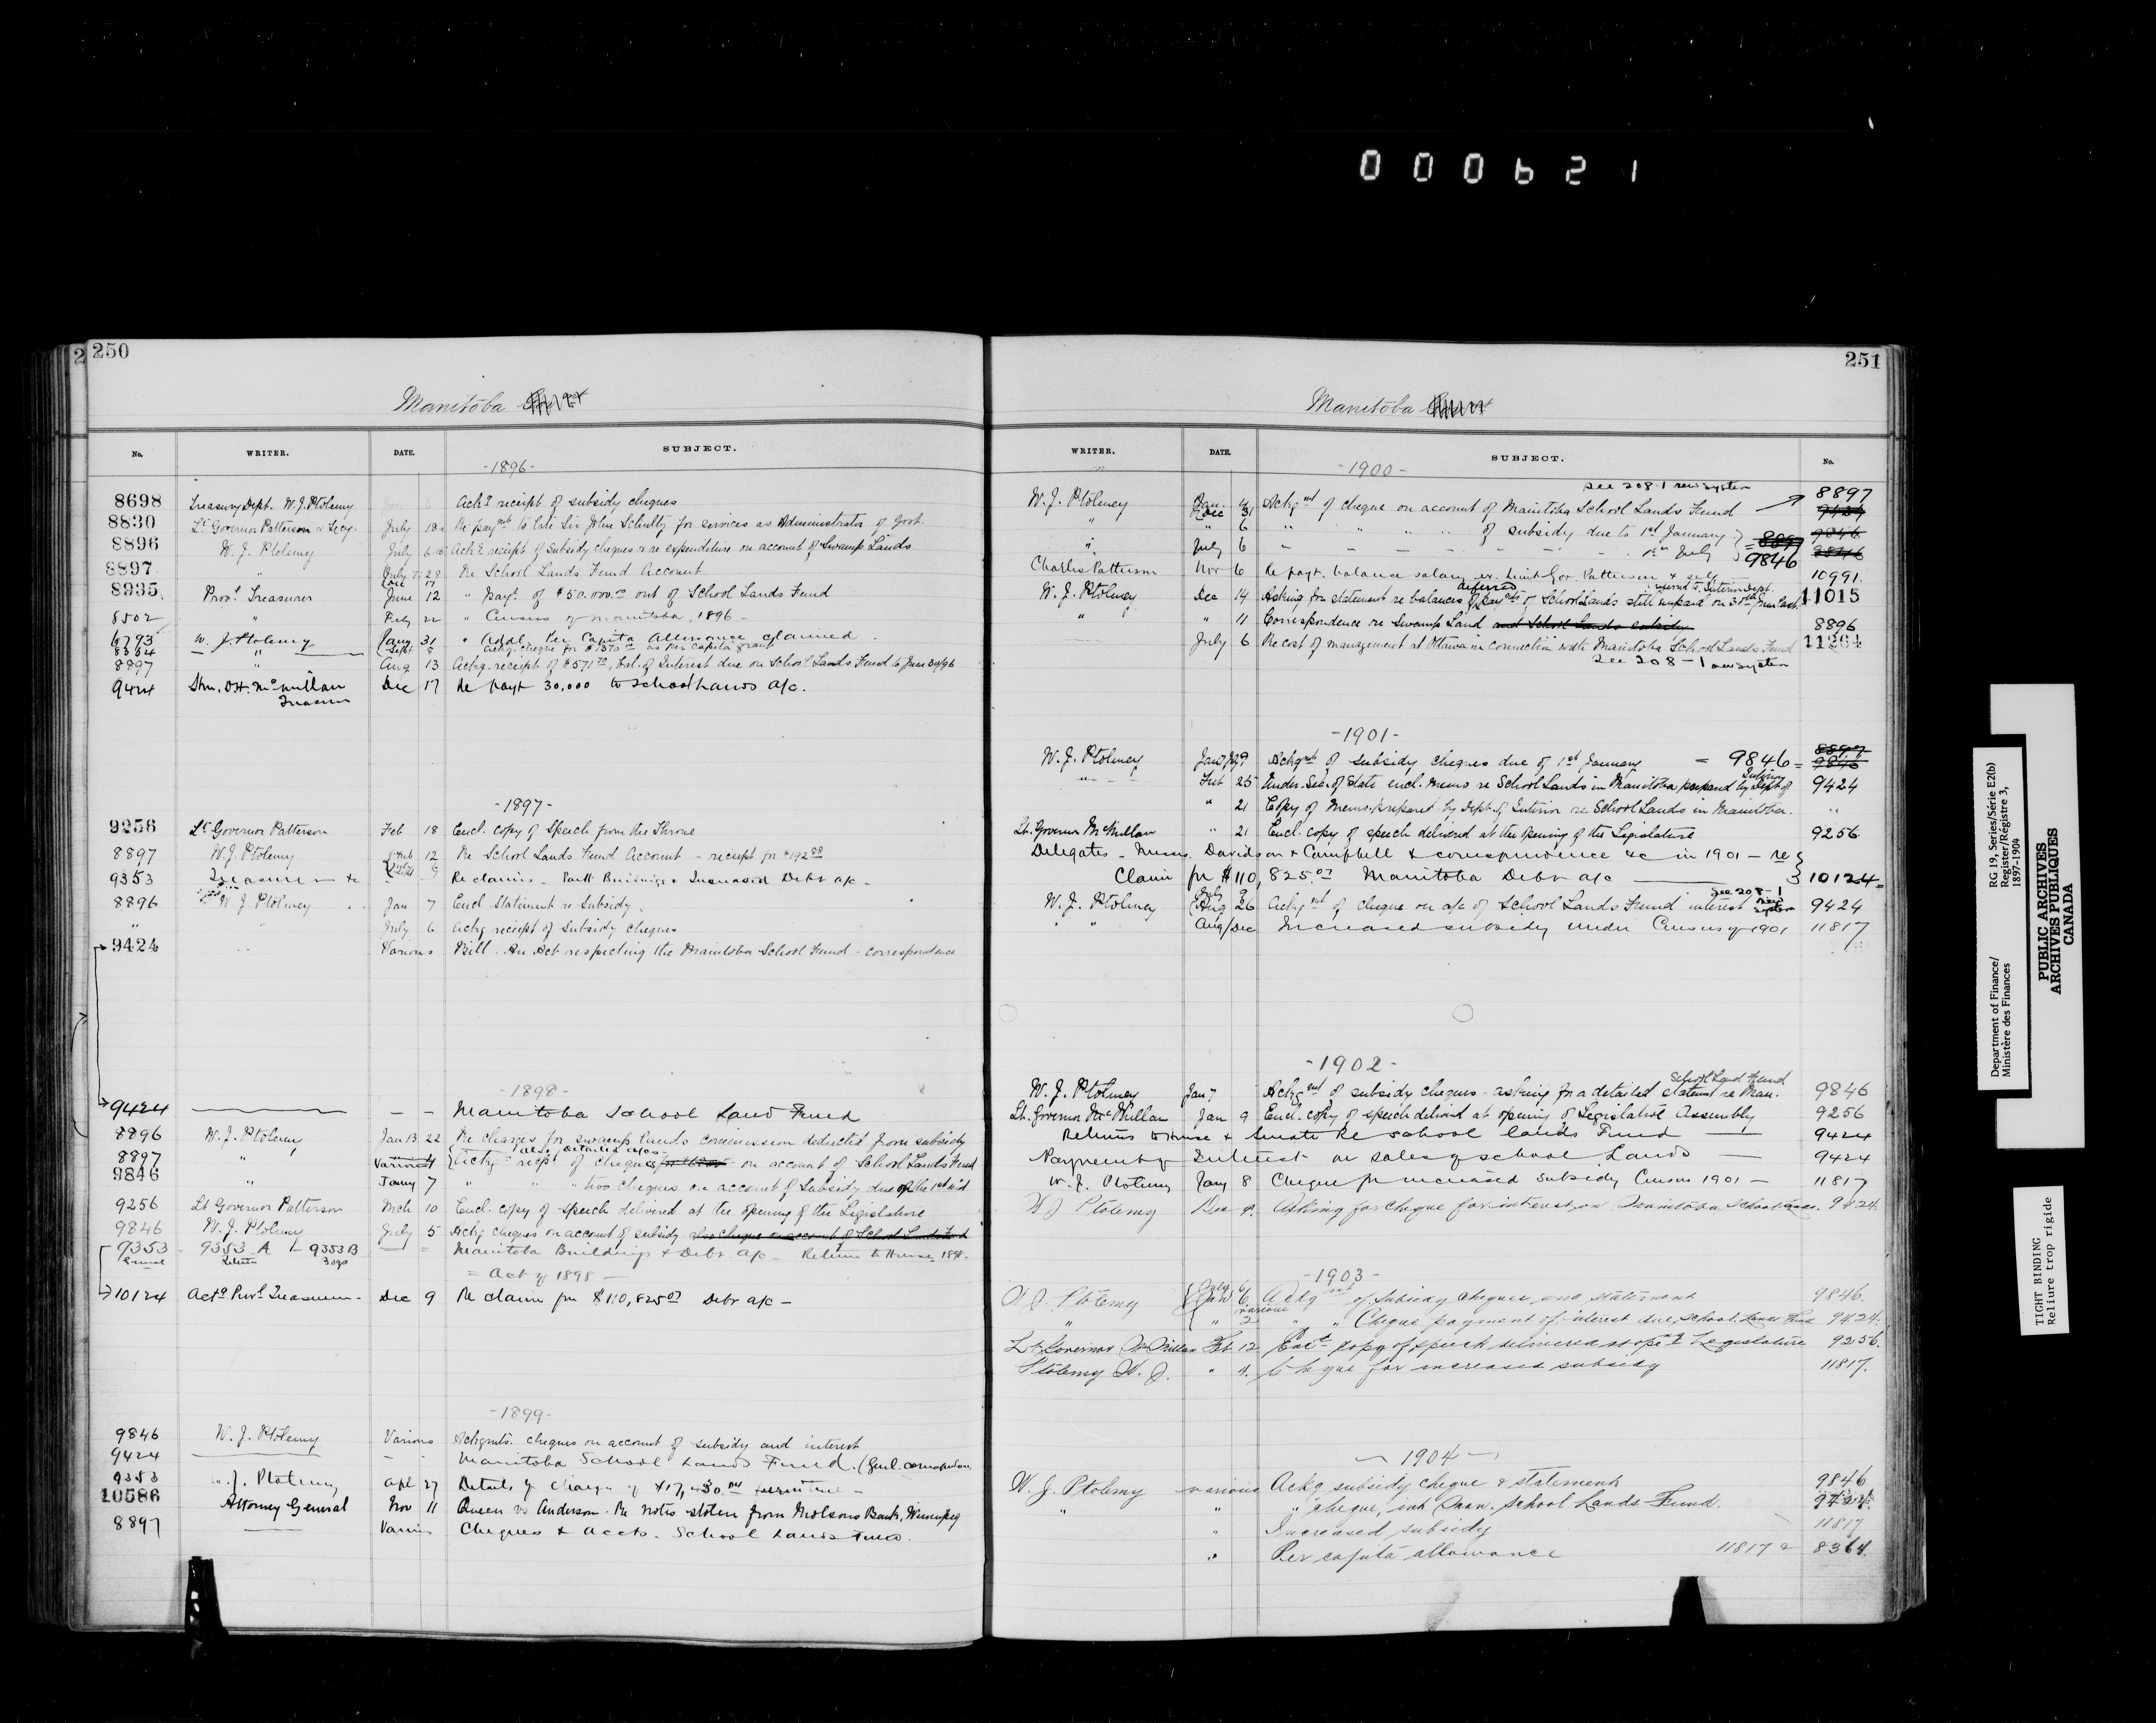 000621
2 250
Manitoba
No. WRITER. DATE. SUBJECT.
-1896-
8698 Treasury Dept. W.J. Ptolemy Ackg receipt of subsidy cheques
8830 Lt Governor Patterson & Secy. July 18 Re paymt to late Sir John Schultz for services as Administrator of Govt.
8896 W. J. Ptolemy July 6 Ackg receipt of Subsidy cheques & re expenditure on account of Swamp Lands
8897 " July 28 Re School Lands Fund Account
Dec 17
8935 Provl Treasurer June 12 " payt of $50.000.00 out of School Lands Fund
8502 " July 22 " Census of Manitoba, 1896 -
6793 W. J. Ptolemy Aug 31 " Addl. Per Capita Allowance claimed.
8364 " Sept 8 Ackg. cheque for as per capita grant
8897 " Aug 13 Ackg. receipt of $571, bal. of Interest due on School Lands Fund to June 30/96
9424 Hon. D.H. McMillan Dec 17 Re payt 30,000 to School Lands a/c.
Treasurer
-1897-
9256 Lt Governor Patterson Feb 18 Encl. copy of Speech from the Throne
8897 W.J. Ptolemy Feb 12 Re School Lands Fund Account - receipt for $192.88
9353 Treasurer &c July 9 Re claims - Parlt Buildings & Increased Debt a/c -
8896 W J Ptolemy Jan 7 Encl Statement re Subsidy.
" July 6 Ackg receipt of Subsidy cheques
9424 Various Bill. An Act respecting the Manitoba School Fund - correspondence
-1898-
9424 — — Manitoba School Land Fund
8896 W. J. Ptolemy Jan 13 22 Re charges for swamp lands commission deducted from subsidy
also detailed a/cs
8897 " Various Ackg recpt of cheques on account of School Lands Fund
9846 " Jany 7 " " " two cheques on account of Subsidy due on the 1st inst
9256 Lt Governor Patterson Mch 10 Encl. copy of speech delivered at the opening of the Legislature
9846 W. J. Ptolemy July 5 Ackg cheques on account of subsidy also cheque on account of School Lands Fund
9353 9353 A - 9353 B Manitoba Buildings & Debt a/c - Return to House 1898.
Return
= Act of 1898 —
10124 Actg Provl Treasurer - Dec 9 Re claim for $110,825.07 Debt a/c -
-1899-
9846 W. J. Ptolemy Various Ackgmts. cheques on account of subsidy and interest
9424 — Manitoba School Lands Fund. (Genl. correspondence
9353 W. J. Ptolemy Apl 27 Details of charge of $17,430.00
10586 Attorney General Nov 11 Queen vs Anderson. Re notes stolen from Molsons Bank, Winnipeg
8897 — Various Cheques & accts. School Lands Fund.
251
Manitoba
WRITER. DATE. SUBJECT. No.
-1900-
See 208-1 new system
W. J. Ptolmey Jan. 4 Ackgmt of cheque on account of Manitoba School Lands Fund 8897
Dec 31 9424
" " 6 " " " of subsidy due to 1st January 9846
" July 6 - - - - 1st July = 8897 9846
9846
Charles Patterson Nov 6 Re payt. balance salary ex. Lieut Gov. Patterson & self 10991.
deferred referred to Interior Dept.
W. J. Ptolmey Dec 14 Asking for statement re balances of paymts of School Lands still unpaid on 30th June last 11015
" " 11 Correspondence re Swamp Land and School Lands subsidy 8896
July 6 Re cost of management at Ottawa in connection with Manitoba School Lands Fund 11264
See 208-1 new system
-1901-
8897
W. J. Ptolmey Jan 7 Ackgmt of subsidy cheques due of 1st January = 9846 = 9846
Interior
" Feb 25 Under-Sec. of State encl. memo re School Lands in Manitoba prepared by Dept of 9424
" 21 Copy of Memo. prepared by Dept. of Interior re School Lands in Manitoba. "
Lt. Governor McMillan " 21 Encl. copy of speech delivered at the opening of the Legislature 9256
Delegates - Messrs. Davidson & Campbell & correspondence &c in 1901 - re
Claim for $110,825.07 Manitoba Debt a/c — 10124
See 208-1
new system
W. J. Ptolmey July 9 Aug 26 Ackgmt of cheque on a/c of School Lands Fund interest 9424
" Aug/Dec Increased subsidy under Census of 1901 11817
-1902-
School Land Fund
W. J. Ptolmey Jan 7 Ackgmt of subsidy cheques - asking for a detailed statement re Man. 9846
Lt. Governor McMillan Jan 9 Encl. copy of speech delivered at opening of Legislative Assembly 9256
Returns to House & Senate Re School lands Fund — 9424
Payment of Interest on sales of school Lands — 9424
W. J. Ptolemy Jany 8 Cheque for increased subsidy Census 1901 - 11817
W J Ptolemy Dec Asking for cheque for interest, on Manitoba School Lands. 9424
-1903-
July 6
W J Ptolemy Jan 6 Ackgmt of subsidy cheques and statement 9846.
various
" " 2 " " Cheque payment of interest due, School Lands Fund 9424
Lt. Governor McMillan Feb 12 copy of speech delivered at Legislature 9256.
Ptolemy W. J. " 4. Cheque for increased subsidy 11817.
- 1904 -
W. J. Ptolemy various Ackg subsidy cheque & statements 9846
" " " cheque, int Man. School Lands Fund. 9424
" Increased subsidy 11817
" Per capita allowance 11817 & 8364.
Department of Finance/
Ministère des Finances
RG 19, Series/Série E2(b)
Register/Régistre 3,
1897-1904
PUBLIC ARCHIVES
ARCHIVES PUBLIQUES
CANADA
TIGHT BINDING
Reliure trop rigide